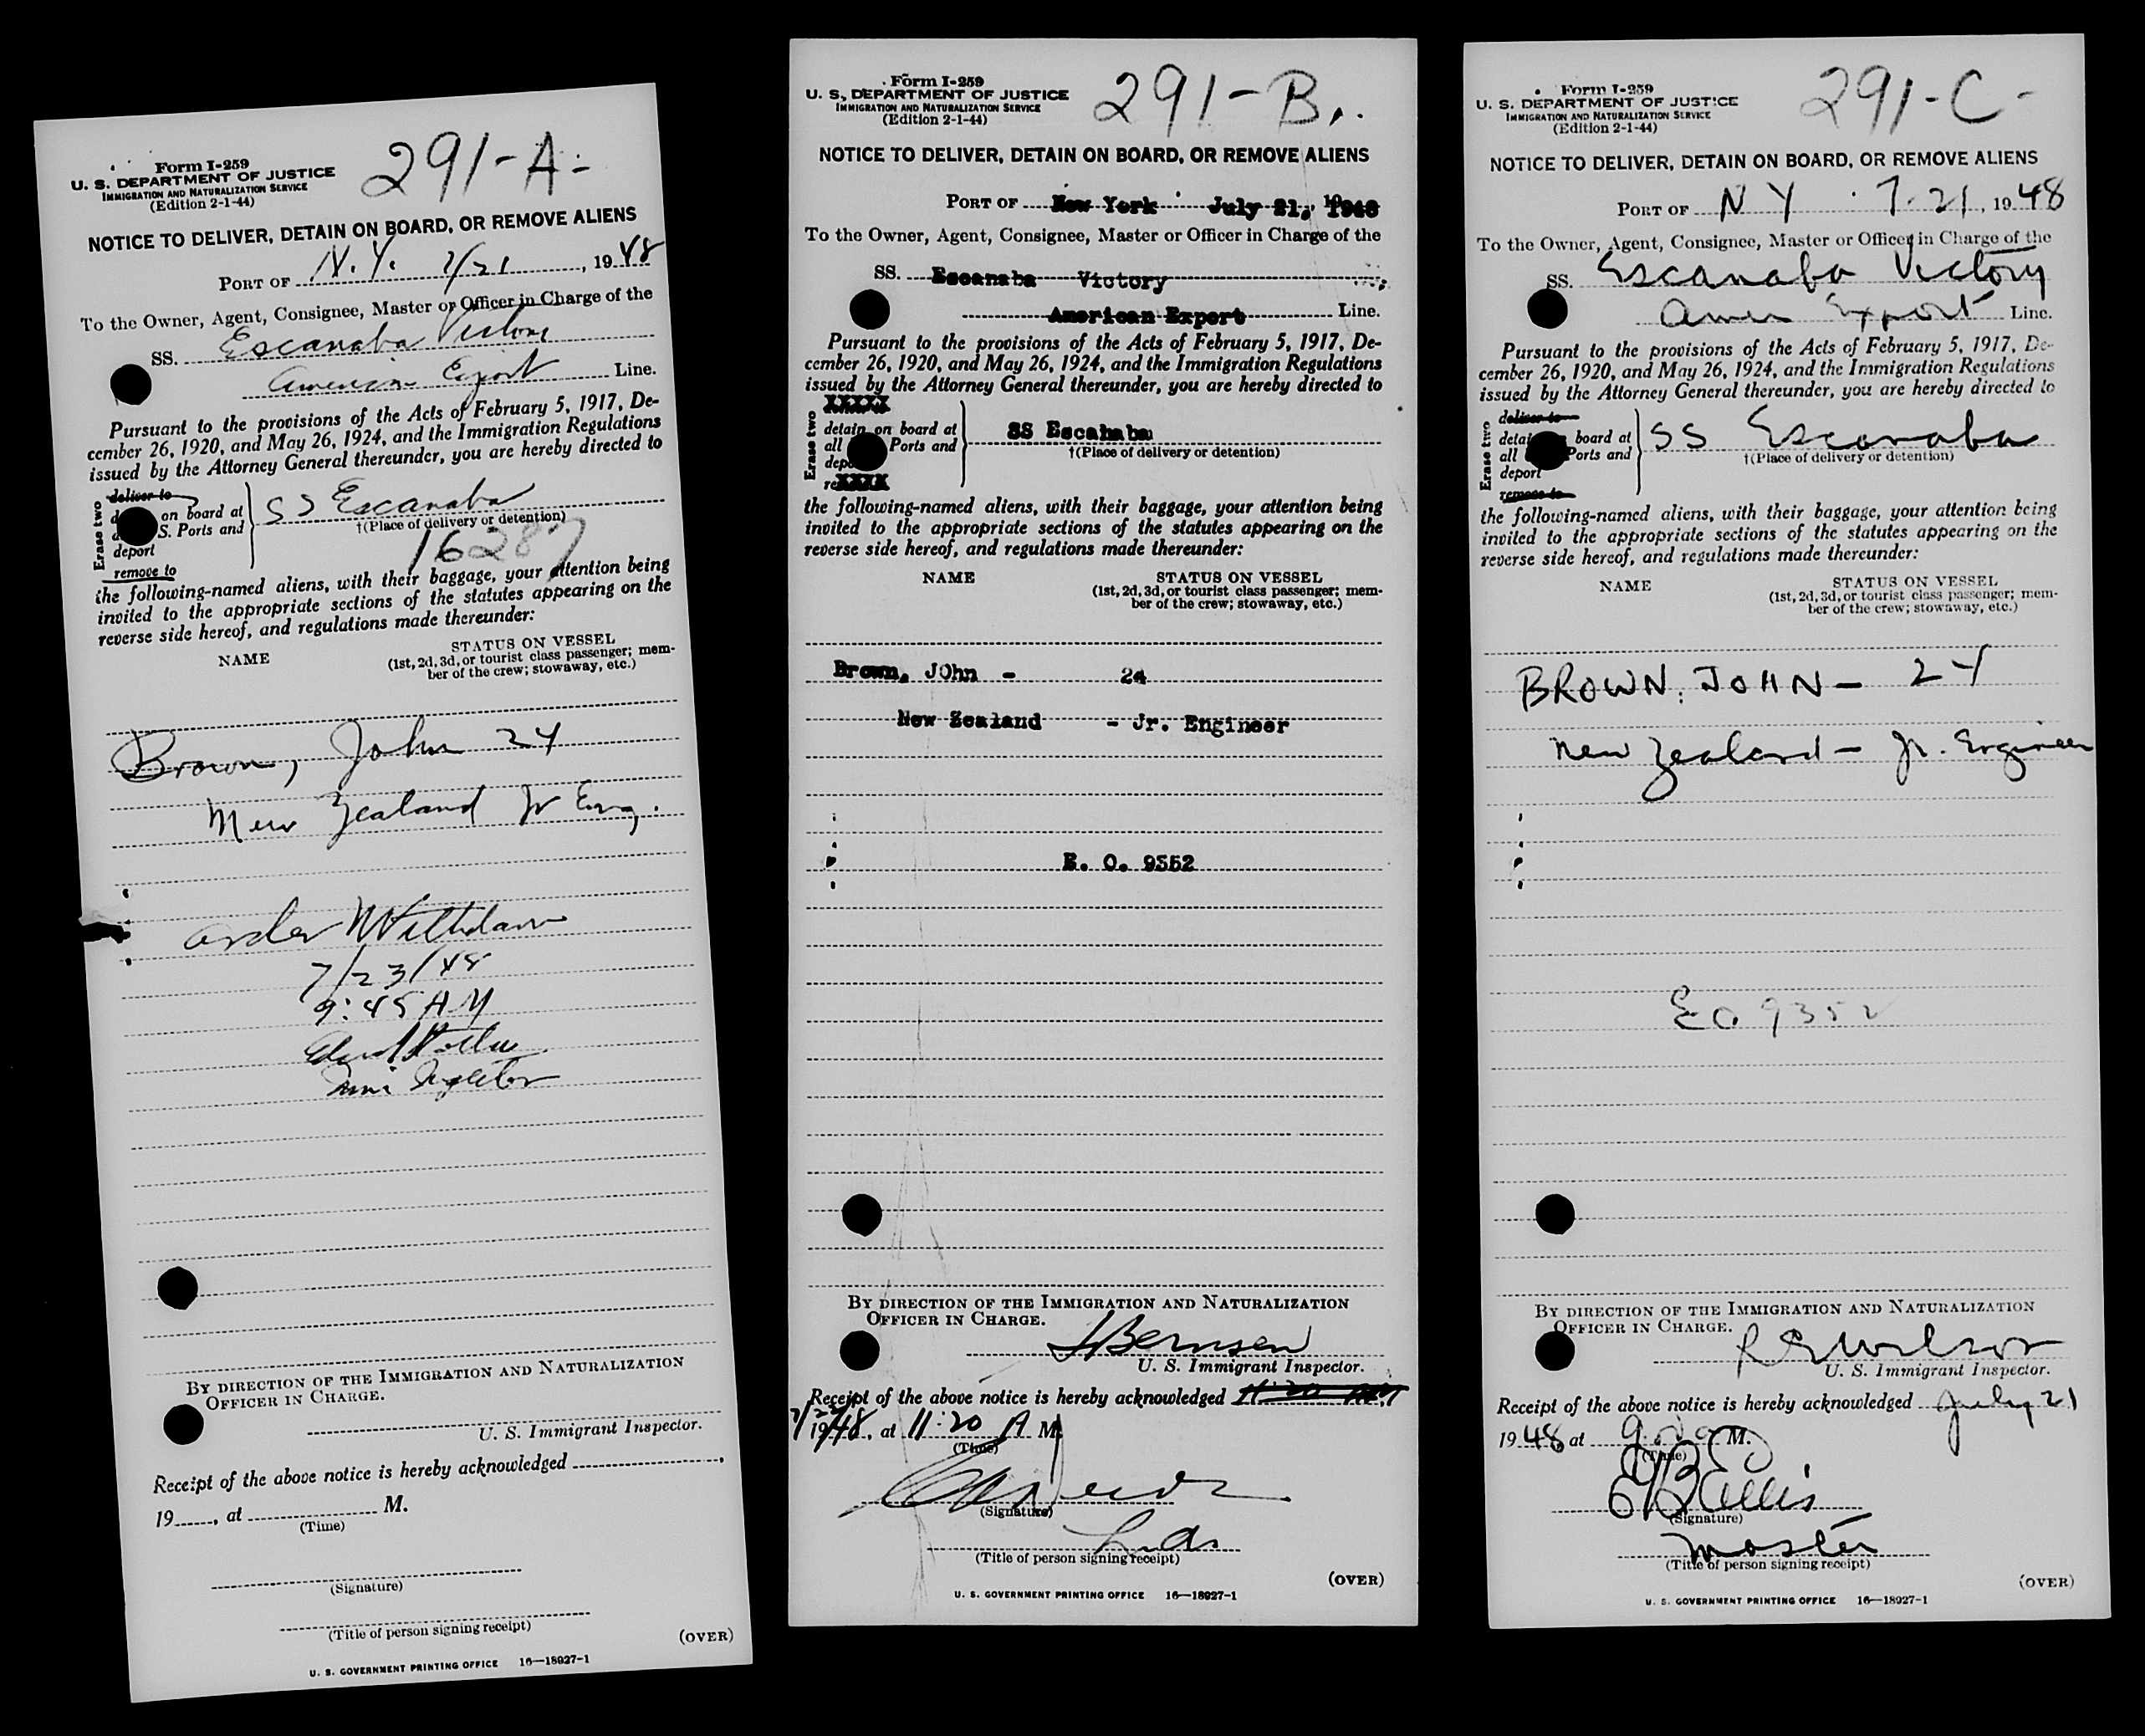 Form I-259
U. S. DEPARTMENT OF JUSTICE
IMMIGRATION AND NATURALIZATION SERVICE
(Edition 2-1-44)
291-A-
NOTICE TO DELIVER, DETAIN ON BOARD, OR REMOVE ALIENS
PORT OF N.Y. 7/21, 1948
To the Owner, Agent, Consignee, Master or Officer in Charge of the
SS. Escanaba Victory
American Export Line.
Pursuant to the provisions of the Acts of February 5, 1917, De-
cember 26, 1920, and May 26, 1924, and the Immigration Regulations
issued by the Attorney General thereunder, you are hereby directed to
Erase two
deliver to
on board at
S. Ports and
deport
remove to
SS Escanaba
†(Place of delivery or detention)
16287
the following-named aliens, with their baggage, your attention being
invited to the appropriate sections of the statutes appearing on the
reverse side hereof, and regulations made thereunder:
NAME
STATUS ON VESSEL
(1st, 2d, 3d, or tourist class passenger; mem-
ber of the crew; stowaway, etc.)
Brown, John 24
New Zealand Jr Eng.
Order Withdawn
7/23/48
9:45 AM
BY DIRECTION OF THE IMMIGRATION AND NATURALIZATION
OFFICER IN CHARGE.
U. S. Immigrant Inspector.
Receipt of the above notice is hereby acknowledged
19, at M.
(Time)
(Signature)
(Title of person signing receipt)
(OVER)
U. S. GOVERNMENT PRINTING OFFICE 16—18927-1
Form I-259
U. S. DEPARTMENT OF JUSTICE
IMMIGRATION AND NATURALIZATION SERVICE
(Edition 2-1-44)
291-B.
NOTICE TO DELIVER, DETAIN ON BOARD, OR REMOVE ALIENS
PORT OF New York July 21, 1948
To the Owner, Agent, Consignee, Master or Officer in Charge of the
SS. Escanaba Victory
American Export Line.
Pursuant to the provisions of the Acts of February 5, 1917, De-
cember 26, 1920, and May 26, 1924, and the Immigration Regulations
issued by the Attorney General thereunder, you are hereby directed to
Erase two
XXXXX
detain on board at
all Ports and
XXXX
SS Escanaba
†(Place of delivery or detention)
the following-named aliens, with their baggage, your attention being
invited to the appropriate sections of the statutes appearing on the
reverse side hereof, and regulations made thereunder:
NAME
STATUS ON VESSEL
(1st, 2d, 3d, or tourist class passenger; mem-
ber of the crew; stowaway, etc.)
Brown, JOhn - 24
New Zealand - Jr. Engineer
E. O. 9352
BY DIRECTION OF THE IMMIGRATION AND NATURALIZATION
OFFICER IN CHARGE.
Bernsen
U. S. Immigrant Inspector.
Receipt of the above notice is hereby acknowledged 11:20 AM
7/22/1948, at 11:20 A M.
(Time)
(Signature)
(Title of person signing receipt)
(OVER)
U. S. GOVERNMENT PRINTING OFFICE 16—18927-1
Form I-259
U. S. DEPARTMENT OF JUSTICE
IMMIGRATION AND NATURALIZATION SERVICE
(Edition 2-1-44)
291-C-
NOTICE TO DELIVER, DETAIN ON BOARD, OR REMOVE ALIENS
PORT OF N Y 7-21, 1948
To the Owner, Agent, Consignee, Master or Officer in Charge of the
SS. Escanaba Victory
Amer Export Line.
Pursuant to the provisions of the Acts of February 5, 1917, De-
cember 26, 1920, and May 26, 1924, and the Immigration Regulations
issued by the Attorney General thereunder, you are hereby directed to
Erase two
deliver to
board at
all Ports and
deport
remove to
SS Escanaba
†(Place of delivery or detention)
the following-named aliens, with their baggage, your attention being
invited to the appropriate sections of the statutes appearing on the
reverse side hereof, and regulations made thereunder:
NAME
STATUS ON VESSEL
(1st, 2d, 3d, or tourist class passenger; mem-
ber of the crew; stowaway, etc.)
BROWN, JOHN - 24
New Zealand - Jr. Engineer
EO 9352
BY DIRECTION OF THE IMMIGRATION AND NATURALIZATION
OFFICER IN CHARGE.
R E Wilson
U. S. Immigrant Inspector.
Receipt of the above notice is hereby acknowledged July 21
1948, at M.
(Time)
Ellis
(Signature)
Master
(Title of person signing receipt)
(OVER)
U. S. GOVERNMENT PRINTING OFFICE 16—18927-1